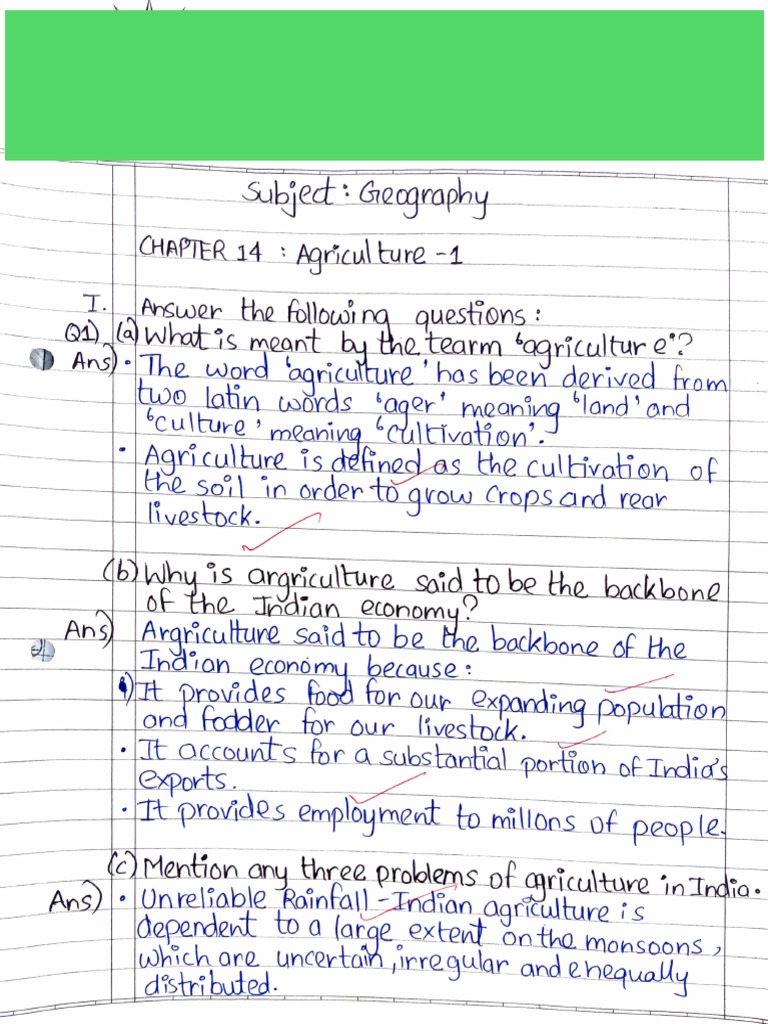 Subject: Geography
CHAPTER 14 : Agriculture -1
I. Answer the following questions:
Q1) (a) What is meant by the tearm 'agriculture'?
Ans) • The word 'agriculture' has been derived from
two latin words 'ager' meaning 'land' and
'culture' meaning 'cultivation'.
• Agriculture is defined as the cultivation of
the soil in order to grow crops and rear
livestock.
(b) Why is argriculture said to be the backbone
of the Indian economy?
Ans) Argriculture said to be the backbone of the
Indian economy because:
•) It provides food for our expanding population
and fodder for our livestock.
• It accounts for a substantial portion of India's
exports.
• It provides employment to millons of people.
(c) Mention any three problems of agriculture in India.
Ans) • Unreliable Rainfall - Indian agriculture is
dependent to a large extent on the monsoons,
which are uncertain, irregular and enequally
distributed.